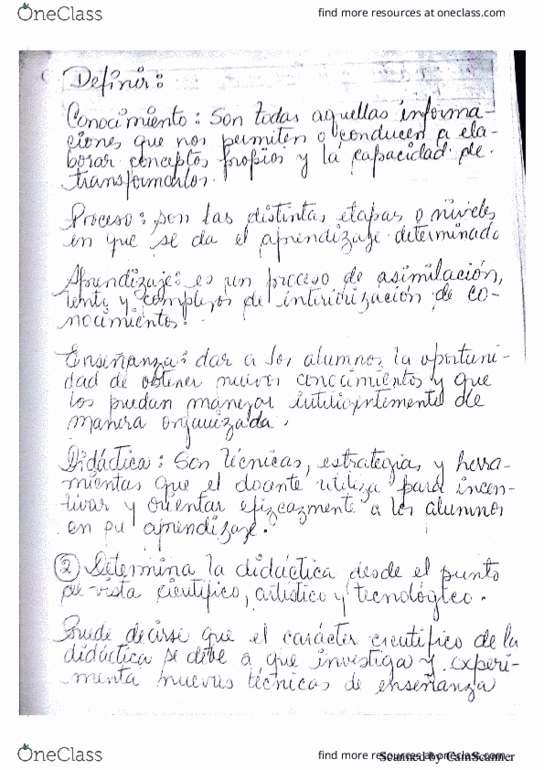 OneClass
find more resources at oneclass.com
Definir:
Conocimiento: Son todas aquellas informa-
ciones que nos permiten o conducen a ela-
borar conceptos propios y la capacidad de
transformarlos.
Proceso: son las distintas etapas o niveles
en que se da el aprendizaje determinado
Aprendizaje: es un proceso de asimilación,
lento y complejos de interiorización de co-
nocimientos.
Enseñanza: dar a los alumnos la oportuni-
dad de obtener nuevos conocimientos y que
los puedan manejar inteligentemente de
manera organizada.
Didáctica: Son técnicas, estrategias, y herra-
mientas que el docente utiliza para incen-
tivar y orientar eficazmente a los alumnos
en su aprendizaje.
② Determina la didáctica desde el punto
de vista científico, artístico y tecnológico.
Puede decirse que el carácter científico de la
didáctica se debe a que investiga y experi-
menta nuevas técnicas de enseñanza
OneClass
find more resources at oneclass.com
Scanned by CamScanner